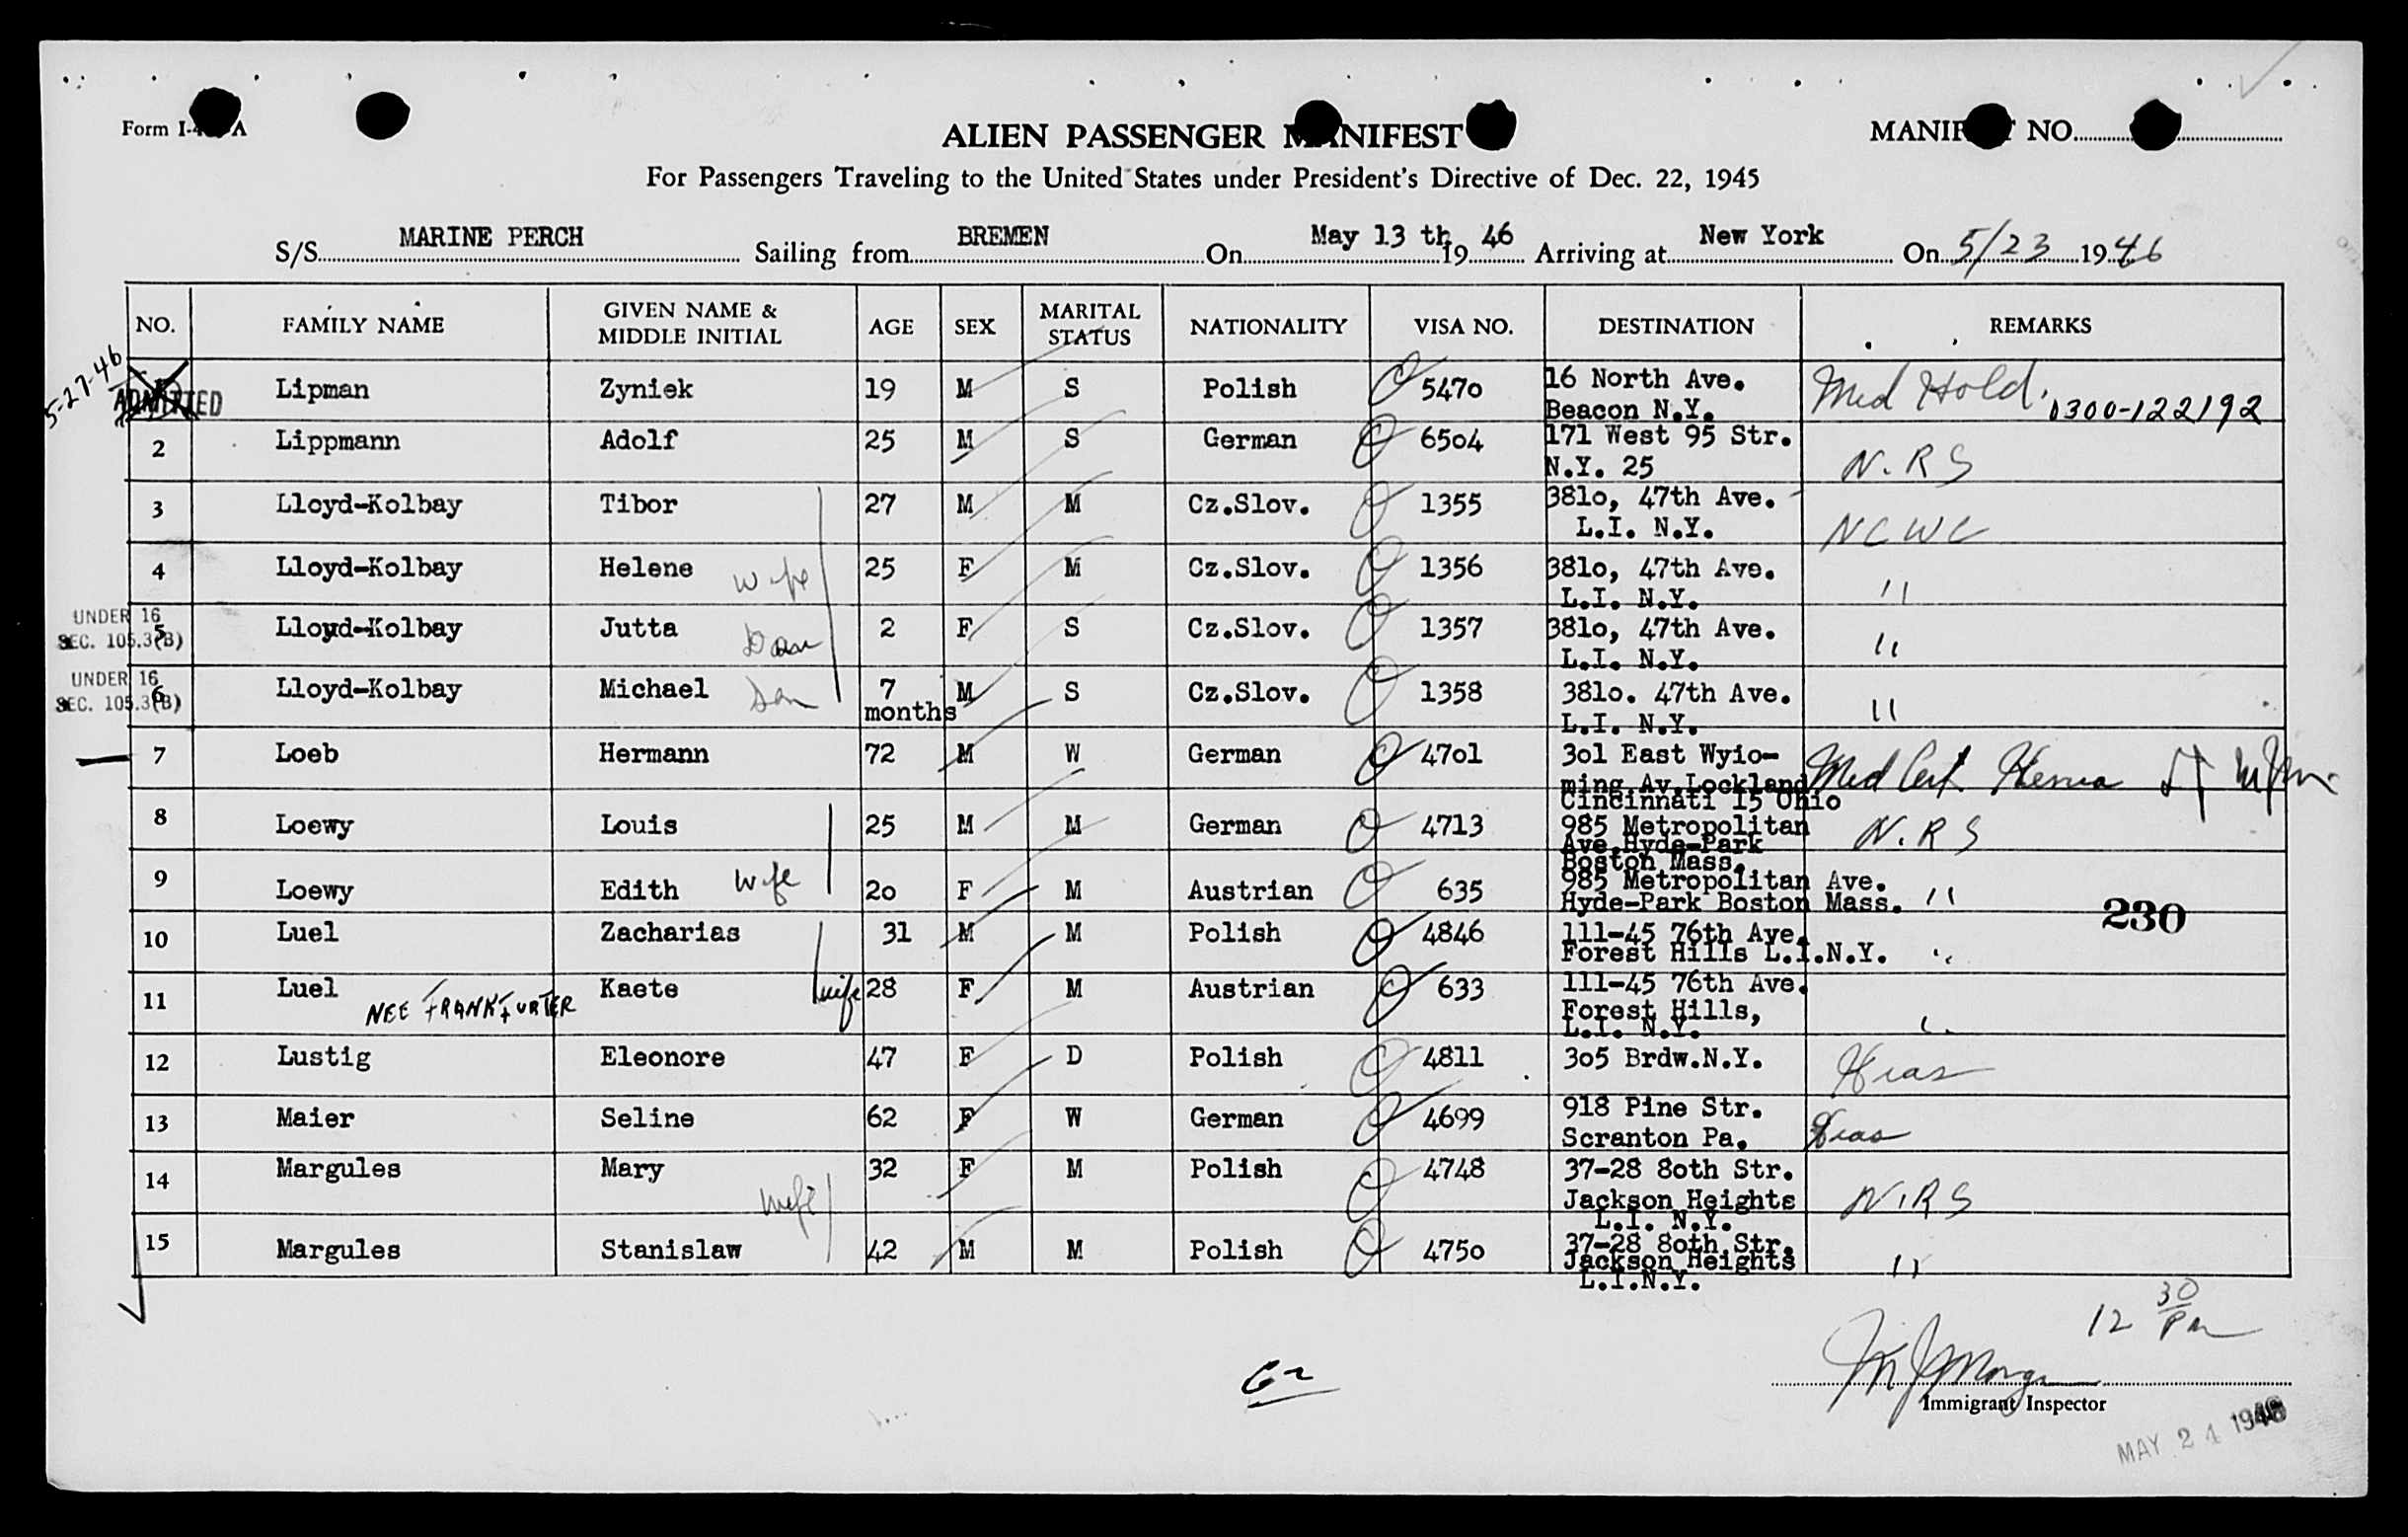 Form I-4 A
ALIEN PASSENGER MANIFEST
MANIFEST NO.
For Passengers Traveling to the United States under President's Directive of Dec. 22, 1945
S/S MARINE PERCH Sailing from BREMEN On May 13 th 19 46 Arriving at New York On 5/23 19 46
NO. FAMILY NAME GIVEN NAME & MIDDLE INITIAL AGE SEX MARITAL STATUS NATIONALITY VISA NO. DESTINATION REMARKS
5-27-46
ADMITTED
Lipman Zyniek 19 M S Polish 5470 16 North Ave. Med Hold.
Beacon N.Y. 0300-122192
2 Lippmann Adolf 25 M S German 6504 171 West 95 Str.
N.Y. 25 N.R S
3 Lloyd-Kolbay Tibor 27 M M Cz.Slov. 1355 381o, 47th Ave.
L.I. N.Y. NCWC
4 Lloyd-Kolbay Helene wife 25 F M Cz.Slov. 1356 381o, 47th Ave.
L.I. N.Y. "
UNDER 16
SEC. 105.3(B)
5 Lloyd-Kolbay Jutta Dau 2 F S Cz.Slov. 1357 381o, 47th Ave.
L.I. N.Y. "
UNDER 16
SEC. 105.3(B)
6 Lloyd-Kolbay Michael Son 7 months M S Cz.Slov. 1358 381o. 47th Ave.
L.I. N.Y. "
7 Loeb Hermann 72 M W German 47o1 3o1 East Wyio-
ming.Av.Lockland Med Cert Hernia
Cincinnati 15 Ohio
8 Loewy Louis 25 M M German 4713 985 Metropolitan N.R S
Ave.Hyde-Park
Boston Mass.
9 Loewy Edith wife 2o F M Austrian 635 985 Metropolitan Ave.
Hyde-Park Boston Mass. "
230
10 Luel Zacharias 31 M M Polish 4846 111-45 76th Ave.
Forest Hills L.I.N.Y. "
11 Luel NEE FRANKFURTER Kaete wife 28 F M Austrian 633 111-45 76th Ave.
Forest Hills,
L.I. N.Y. "
12 Lustig Eleonore 47 F D Polish 4811 3o5 Brdw.N.Y. Hias
13 Maier Seline 62 F W German 4699 918 Pine Str.
Scranton Pa. Hias
14 Margules Mary wife 32 F M Polish 4748 37-28 8oth Str.
Jackson Heights N.R S
L.I. N.Y.
15 Margules Stanislaw 42 M M Polish 475o 37-28 8oth Str.
Jackson Heights "
L.I.N.Y.
12 30 PM
Immigrant Inspector
MAY 24 1946